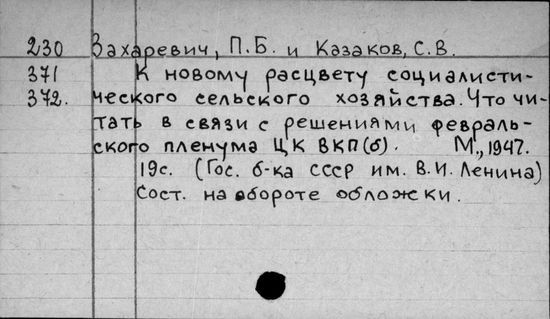 230 Захаревич, П.Б. и Казаков, С.В.
371 К новому расцвету социалисти-
372. ческого сельского хозяйства. Что чи-
тать в связи с решениями февраль-
ского пленума ЦК ВКП(б). М., 1947.
19с. (Гос. б-ка СССР им. В.И. Ленина)
Сост. на обороте обложки.